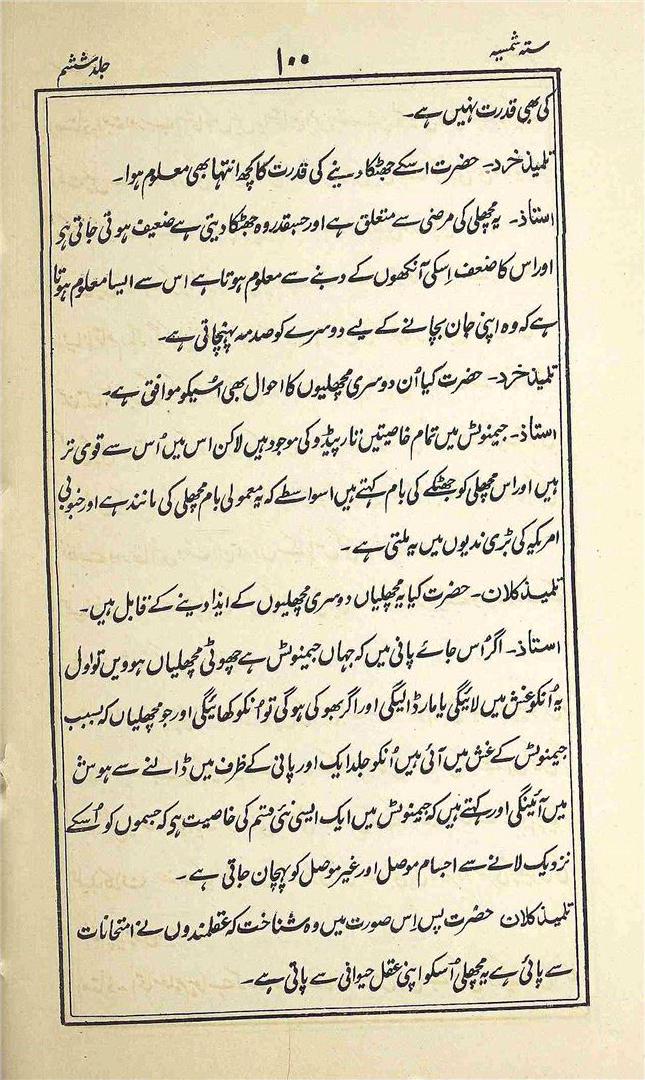 ستہ شمسیہ ۱۰۰ جلد ششم
کی بھی قدرت نہیں ہے۔
تلمیذ خرد۔ حضرت اسکے جھٹکا دینے کی قدرت کا کچھ انتہا بھی معلوم ہوا۔
استاذ۔ یہ مچھلی کی مرضی سے متعلق ہے اور جسقدر وہ جھٹکا دیتی ہے ضعیف ہوتی جاتی ہو
اور اس کا ضعف اِسکی آنکھوں کے دبنے سے معلوم ہوتا ہے اس سے ایسا معلوم ہوتا
ہے کہ وہ اپنی جان بچانے کے لیے دوسرے کو صدمہ پہنچاتی ہے۔
تلمیذ خرد۔ حضرت کیا اُن دوسری مچھلیوں کا احوال بھی اُسیکو موافق ہے۔
استاذ۔ جیمنوٹس میں تمام خاصیتیں تارپیڈو کی موجود ہیں لاکن اس میں اُس سے قوی تر
ہیں اور اس مچھلی کو جھٹکے کی بام کہتے ہیں اسواسطے کہ یہ معمولی بام مچھلی کی مانند ہے اور جنوبی
امریکہ کی بڑی ندیوں میں یہ ملتی ہے۔
تلمیذ کلان۔ حضرت کیا یہ مچھلیاں دوسری مچھلیوں کے ایذا دینے کے قابل ہیں۔
استاذ۔ اگر اُس جائے پانی میں کہ جہاں جیمنوٹس ہے چھوٹی مچھلیاں ہوویں تو اول
یہ اُنکو غش میں لائیگی یا مار ڈالیگی اور اگر بھوکی ہوگی تو اُنکو کھائیگی اور جو مچھلیاں کہ بسبب
جیمنوٹس کے غش میں آئی ہیں اُنکو جلد ایک اور پانی کے ظرف میں ڈالنے سے ہوش
میں آئینگی اور کہتے ہیں کہ جیمنوٹس میں ایک ایسی نئی قسم کی خاصیت ہو کہ جسموں کو اُسکے
نزدیک لانے سے اجسام موصل اور غیر موصل کو پہچان جاتی ہے۔
تلمیذ کلان حضرت پس اِس صورت میں وہ شناخت کہ عقلمندوں نے امتحانات
سے پائی ہے یہ مچھلی اُسکو اپنی عقل حیوانی سے پاتی ہے۔